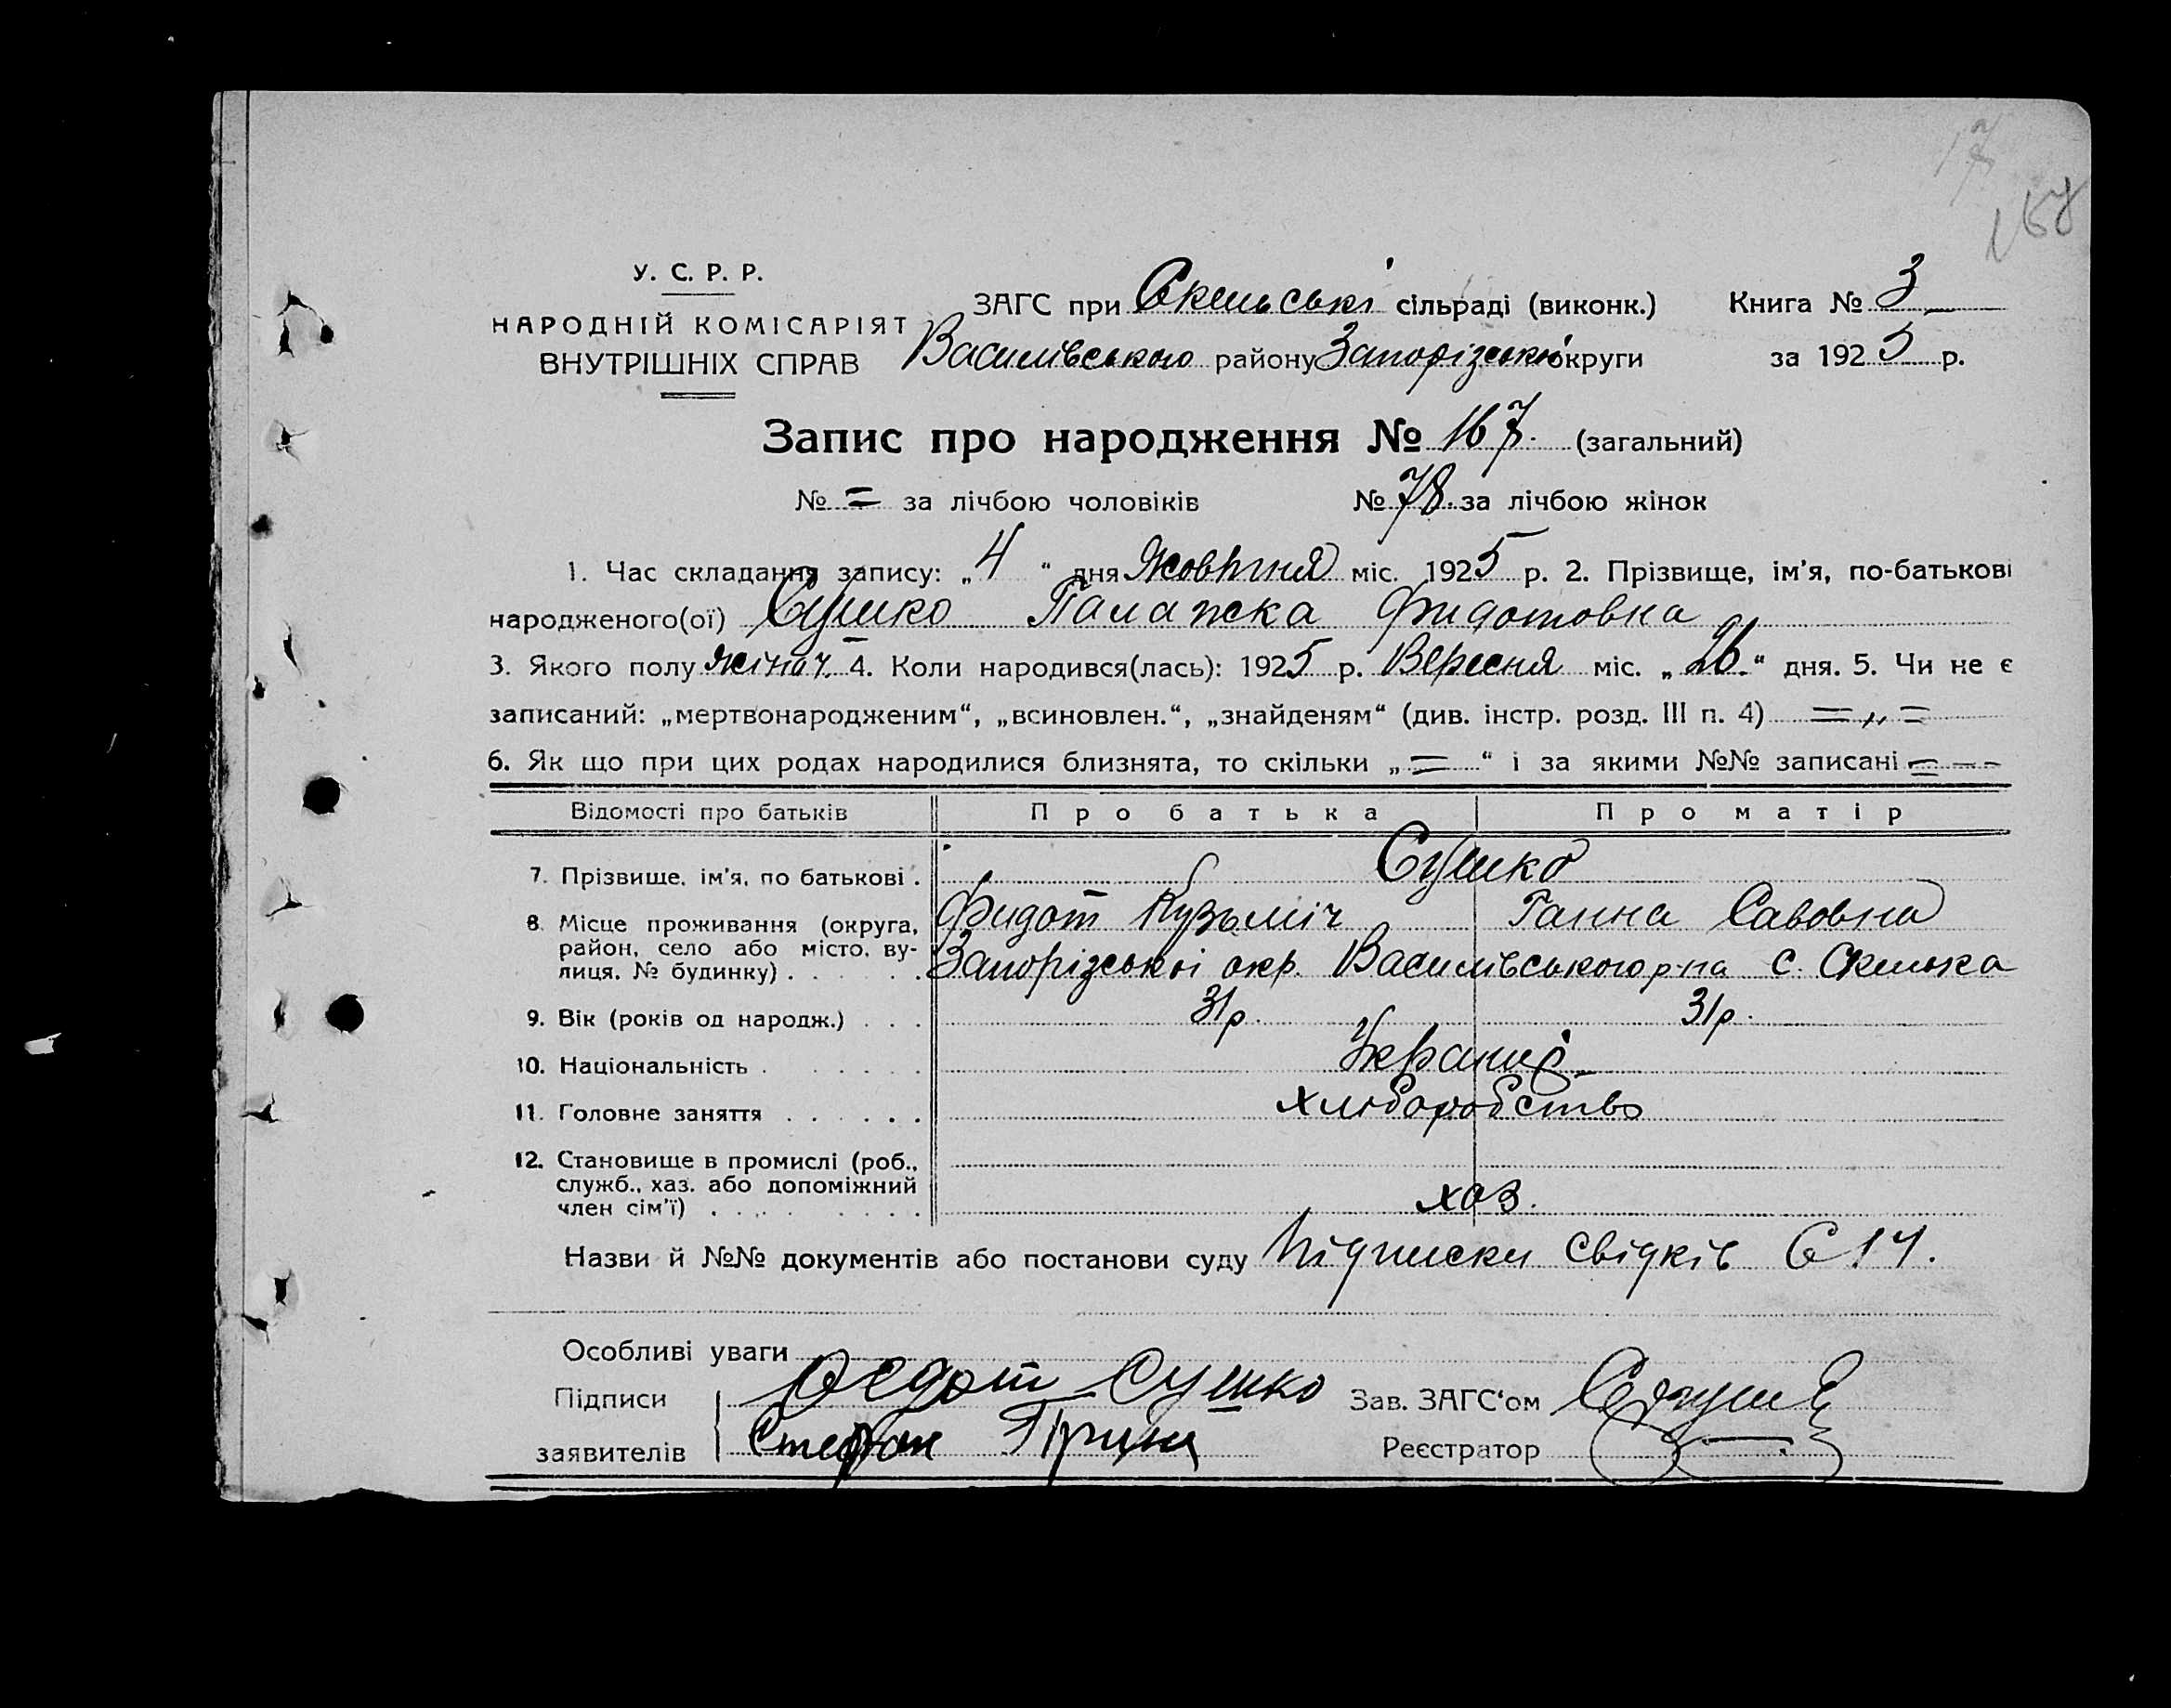 У. С. Р. Р.
НАРОДНІЙ КОМІСАРІЯТ
ВНУТРІШНІХ СПРАВ
ЗАГС при Скельські сільраді (виконк.) Книга № 3
Василівського району Запорізської округи за 1925 р.
Запис про народження № 167. (загальний)
№ = за лічбою чоловіків № 78. за лічбою жінок
1. Час складання запису: „4“ дня Жовтня міс. 1925 р. 2. Прізвище, ім'я, по-батькові
народженого(ої) Сушко Палажка Фидотовна
3. Якого полу жіноч. 4. Коли народився(лась): 1925 р. Вересня міс. „26.“ дня. 5. Чи не є
записаний: „мертвонародженим“, „всиновлен.“, „знайденям“ (див. інстр. розд. III п. 4) = „ =
6. Як що при цих родах народилися близнята, то скільки „=“ і за якими №№ записані = - -
Відомості про батьків Про батька Про матір
7. Прізвище, ім'я, по батькові . Сушко
Фидот Кузьміч Ганна Савовна
8. Місце проживання (округа,
район, село або місто, ву-
лиця, № будинку) . . . . Запорізської окр. Василівського р-на с. Скелька
9. Вік (років од народж.) . . . 31р. 31р.
10. Національність . . . . . Україн.
11. Головне заняття . . . . . хліборобство
12. Становище в промислі (роб.,
служб., хаз. або допоміжний
член сім'ї) . . . . . . . хоз.
Назви й №№ документів або постанови суду Підписки свідків
Особливі уваги
Підписи Федот Сушко Зав. ЗАГС'ом
заявителів Стефан Реєстратор